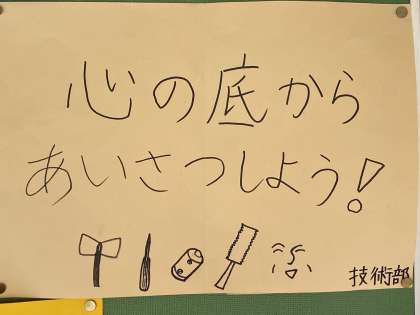 心の底から
あいさつしよう!
技術部